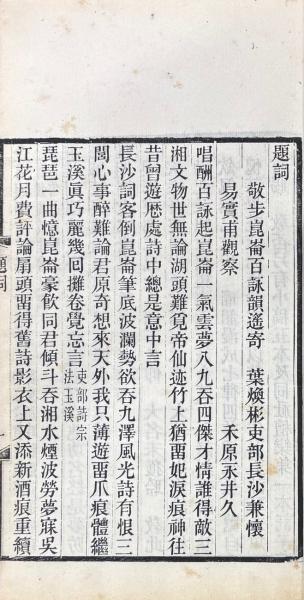 題詞
敬步崑崙百詠韻遙寄　葉煥彬吏部長沙兼懷
易實甫觀察　禾原永井久
唱酬百詠起崑崙一氣雲夢八九吞四傑才情誰得敵三
湘文物世無論湖頭難覓帝仙迹竹上猶畱妃淚痕神往
昔曾遊歷處詩中總是意中言
長沙詞客倒崑崙筆底波瀾勢欲吞九澤風光詩有恨三
閭心事醉難論君原奇想來天外我只薄遊畱爪痕體繼
玉溪眞巧麗幾囘攤卷覺忘言吏部詩宗法玉溪
琵琶一曲憶崑崙豪飲同君傾斗吞湘水煙波勞夢寐吳
江花月費評論扇頭畱得舊詩影衣上又添新酒痕重續
題詞
一